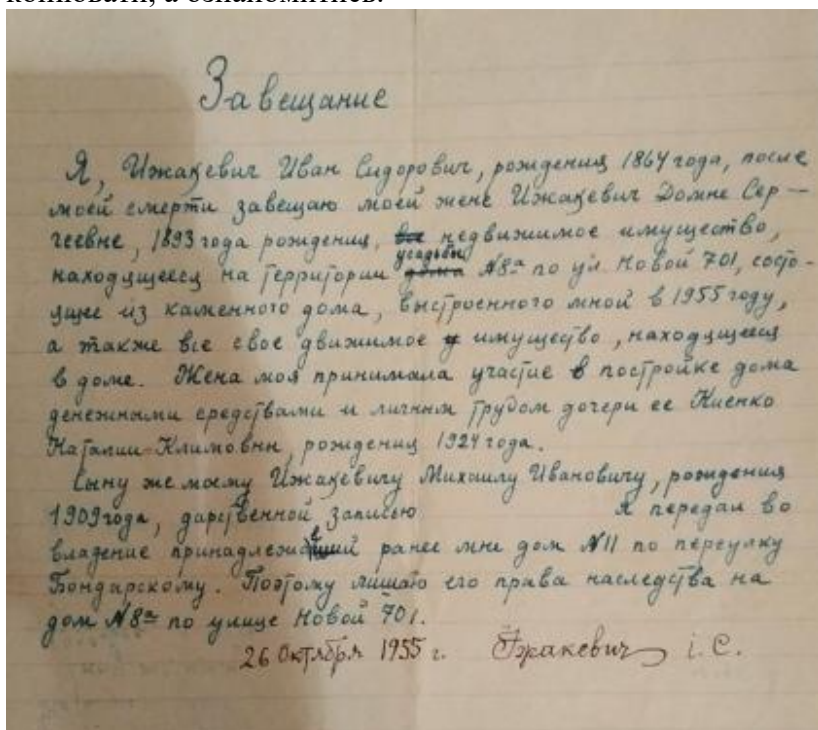 копіювати, а ознайомитись.
Завещание
Я, Ижакевич Иван Сидорович, рождения 1864 года, после
моей смерти завещаю моей жене Ижакевич Домне Сер-
геевне, 1893 года рождения, все недвижимое имущество,
усадьбы
находящееся на территории дома №8а по ул. Новой 701, состо-
ящее из каменного дома, выстроенного мной в 1955 году,
а также все свое движимое и имущество, находящееся
в доме. Жена моя принимала участие в постройке дома
денежными средствами и личным трудом дочери ее Киенко
Наталии Климовны, рождения 1924 года.
Сыну же моему Ижакевичу Михаилу Ивановичу, рождения
1909 года, дарственной записью я передал во
владение ранее мне дом №11 по переулку
Бондарскому. Поэтому лишаю его права наследства на
дом №8а по улице Новой 701.
26 Октября 1955 г. Їжакевич і. С.